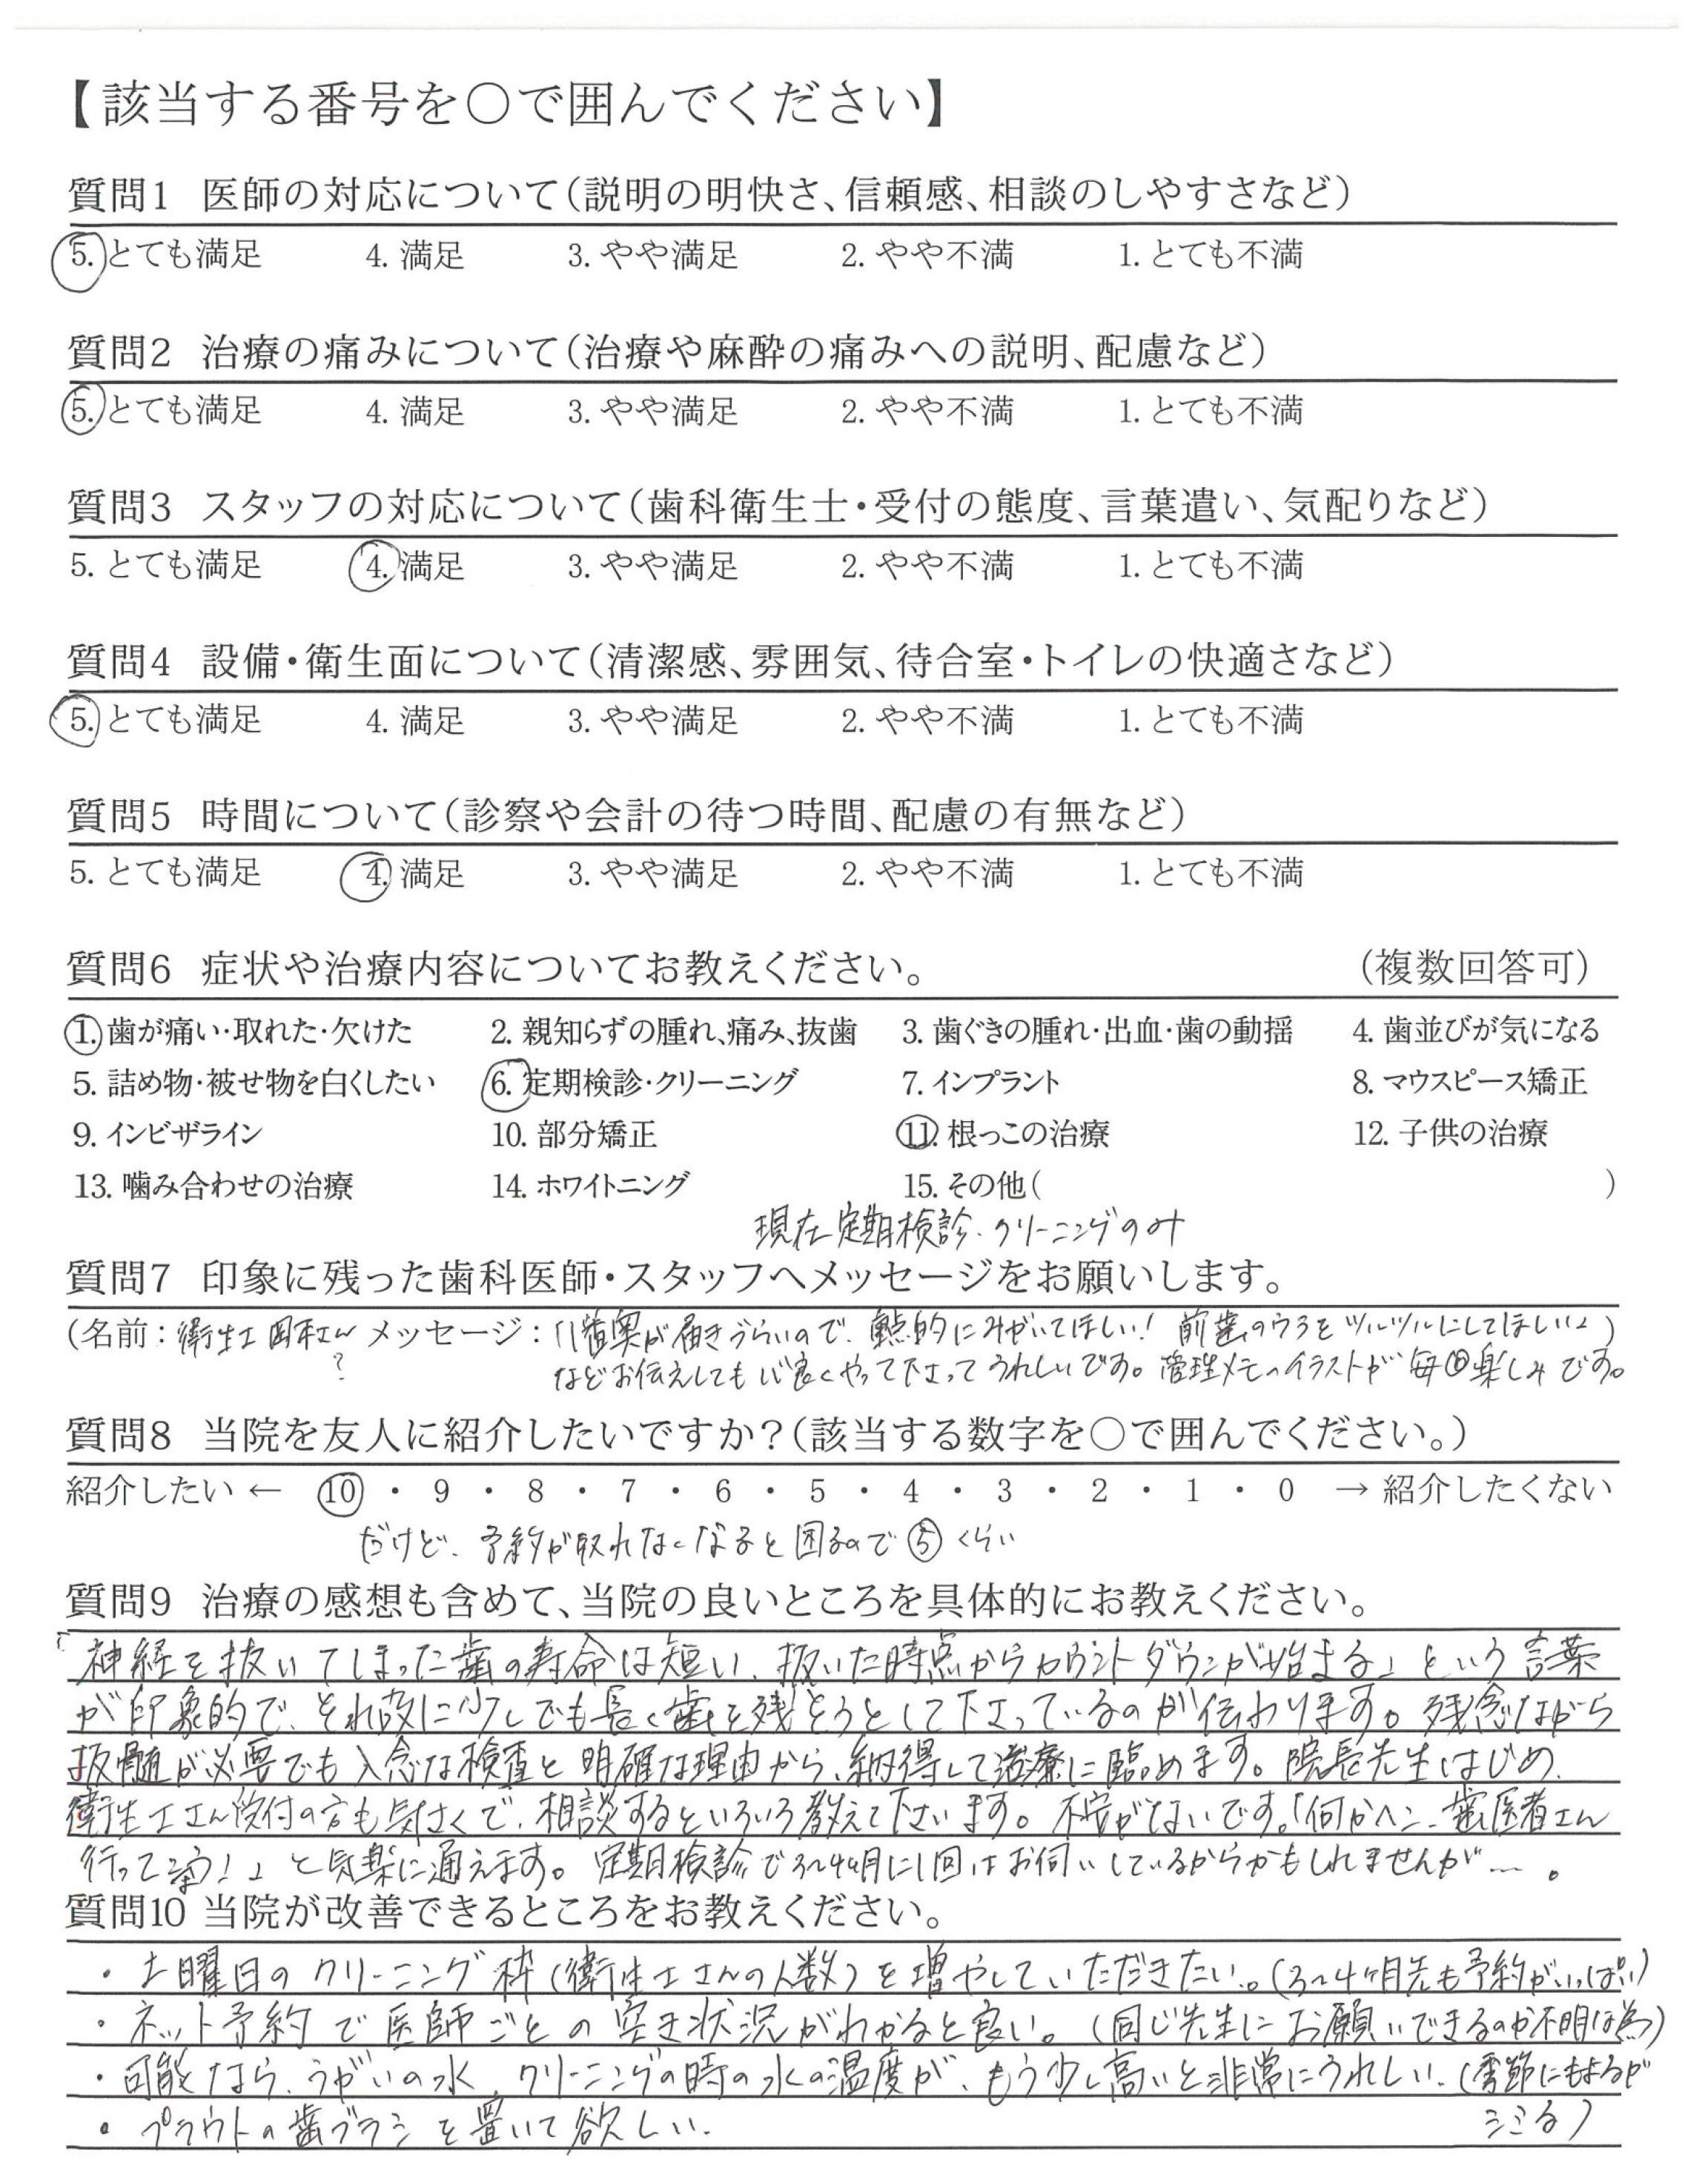 【該当する番号を○で囲んでください】
質問1 医師の対応について(説明の明快さ、信頼感、相談のしやすさなど)
5. とても満足 4. 満足 3. やや満足 2. やや不満 1. とても不満
質問2 治療の痛みについて(治療や麻酔の痛みへの説明、配慮など)
5. とても満足 4. 満足 3. やや満足 2. やや不満 1. とても不満
質問3 スタッフの対応について(歯科衛生士・受付の態度、言葉遣い、気配りなど)
5. とても満足 4. 満足 3. やや満足 2. やや不満 1. とても不満
質問4 設備・衛生面について(清潔感、雰囲気、待合室・トイレの快適さなど)
5. とても満足 4. 満足 3. やや満足 2. やや不満 1. とても不満
質問5 時間について(診察や会計の待つ時間、配慮の有無など)
5. とても満足 4. 満足 3. やや満足 2. やや不満 1. とても不満
質問6 症状や治療内容についてお教えください。 (複数回答可)
1. 歯が痛い・取れた・欠けた 2. 親知らずの腫れ、痛み、抜歯 3. 歯ぐきの腫れ・出血・歯の動揺 4. 歯並びが気になる
5. 詰め物・被せ物を白くしたい 6. 定期検診・クリーニング 7. インプラント 8. マウスピース矯正
9. インビザライン 10. 部分矯正 11. 根っこの治療 12. 子供の治療
13. 噛み合わせの治療 14. ホワイトニング 15. その他( )
現在定期検診・クリーニングのみ
質問7 印象に残った歯科医師・スタッフへメッセージをお願いします。
(名前:衛生士 さん メッセージ:「歯奥が届きづらいので、重点的にみがいてほしい! 前歯のウラをツルツルにしてほしい」)
?
などお伝えしても心良くやって下さってうれしいです。管理メモのイラストが毎回楽しみです。
質問8 当院を友人に紹介したいですか?(該当する数字を○で囲んでください。)
紹介したい ← 10 ・ 9 ・ 8 ・ 7 ・ 6 ・ 5 ・ 4 ・ 3 ・ 2 ・ 1 ・ 0 → 紹介したくない
だけど、予約が取れなくなると困るので⑤くらい
質問9 治療の感想も含めて、当院の良いところを具体的にお教えください。
「神経を抜いてしまった歯の寿命は短い、抜いた時点からカウントダウンが始まる」という言葉
が印象的で、それ故に少しでも長く歯を残そうとして下さっているのが伝わります。残念ながら
抜髄が必要でも入念な検査と明確な理由から、納得して治療に臨めます。院長先生はじめ、
衛生士さん受付の方も気さくで、相談するといろいろ教えて下さいます。不安がないです。「何かヘン、歯医者さん
行って治!」と気楽に通えます。定期検診で3~4ヶ月に1回はお伺いしているからかもしれませんが…。
質問10 当院が改善できるところをお教えください。
・土曜日のクリーニング枠(衛生士さんの人数)を増やしていただきたい。(3~4ヶ月先も予約がいっぱい)
・ネット予約で医師ごとの空き状況がわかると良い。(同じ先生にお願いできるのか不明な為)
・可能なら、うがいの水、クリーニングの時の水の温度が、もう少し高いと非常にうれしい。(季節にもよるが
シミる)
・プラウトの歯ブラシを置いて欲しい。